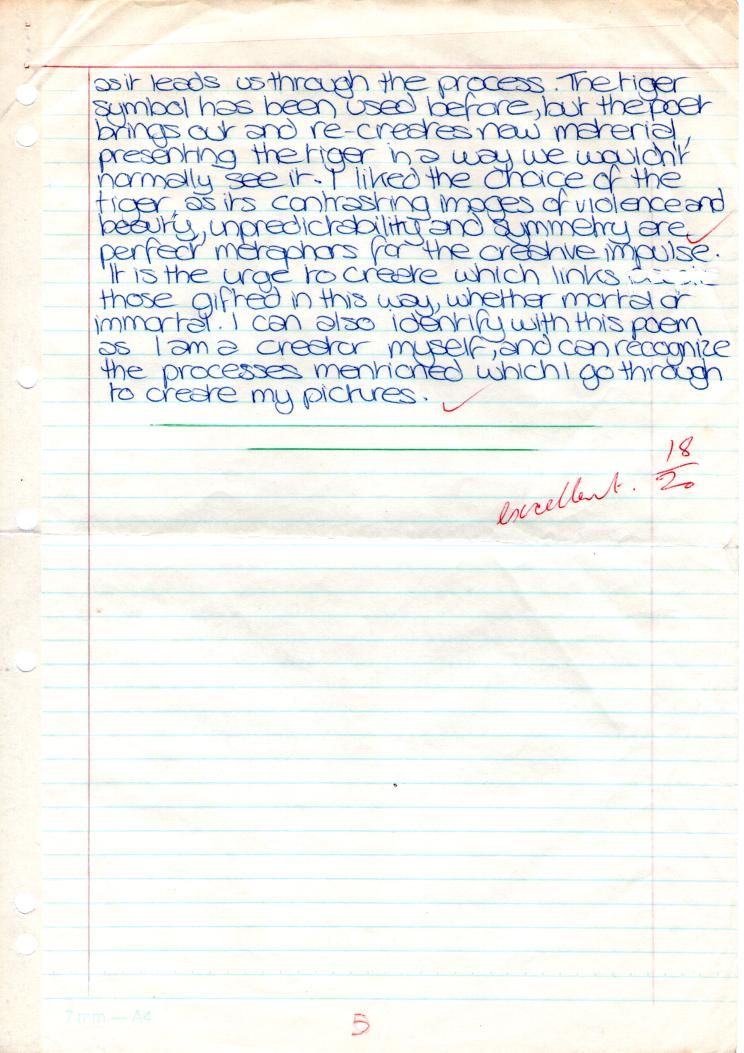 as it leads us through the process. The tiger
symbol has been used before, but the poet
brings out and re-creates new material,
presenting the tiger in a way we wouldn't
normally see it. I liked the choice of the
tiger, as its contrasting images of violence and
beauty, unpredictability and symmetry are
perfect metaphors for the creative impulse.
It is the urge to create which links
those gifted in this way, whether mortal or
immortal. I can also identify with this poem
as I am a creator myself, and can recognize
the processes mentioned which I go through
to create my pictures.
18
excellent. 20
7mm — A4
5